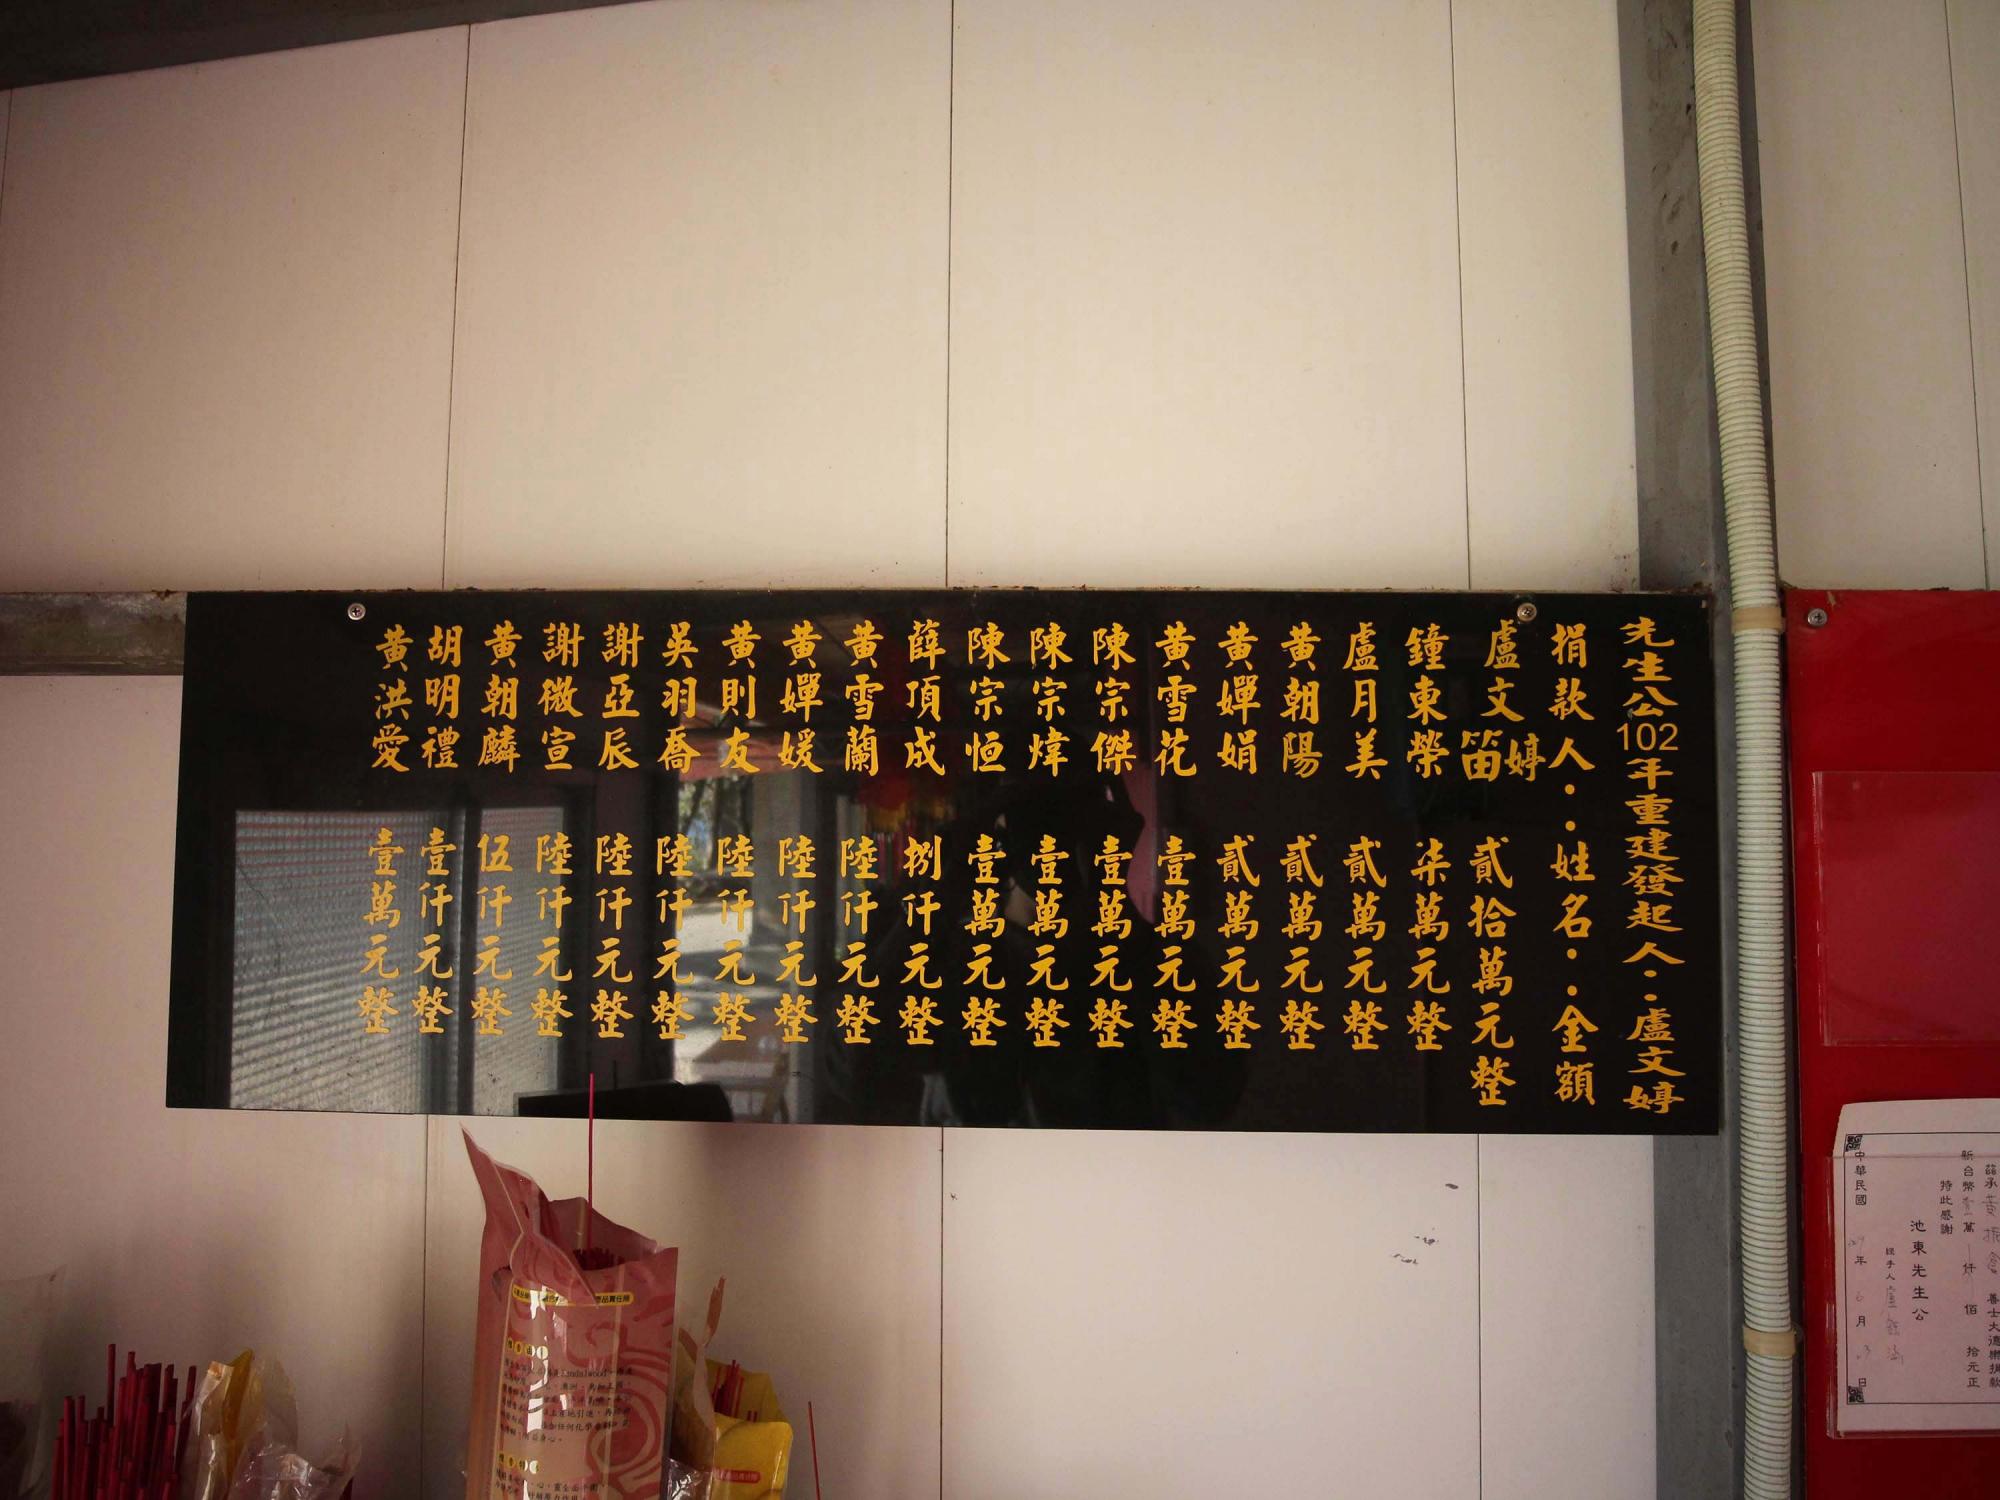 先生公102年重建發起人：盧文婷
捐款人：姓名：金額
盧文笛婷 貳拾萬元整
鐘東榮 柒萬元整
盧月美 貳萬元整
黃朝陽 貳萬元整
黃嬋娟 貳萬元整
黃雪花 壹萬元整
陳宗傑 壹萬元整
陳宗煒 壹萬元整
陳宗恒 壹萬元整
薛頂成 捌仟元整
黃雪蘭 陸仟元整
黃嬋媛 陸仟元整
黃則友 陸仟元整
吳羽喬 陸仟元整
謝亞辰 陸仟元整
謝微宣 陸仟元整
黃朝麟 伍仟元整
胡明禮 壹仟元整
黃洪愛 壹萬元整
善士大德樂捐款
新台幣 萬 仟 佰 拾元正
特此感謝
池東先生公
經手人
中華民國 年 6 月 日